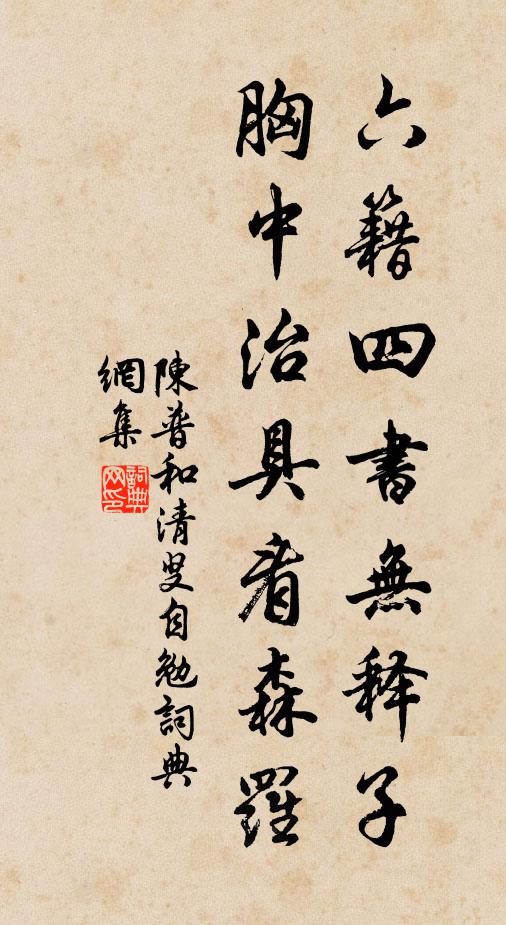 六籍四書無释子
胸中治具看森羅
陳普和清叟自勉詞典
網集
詞典
网印